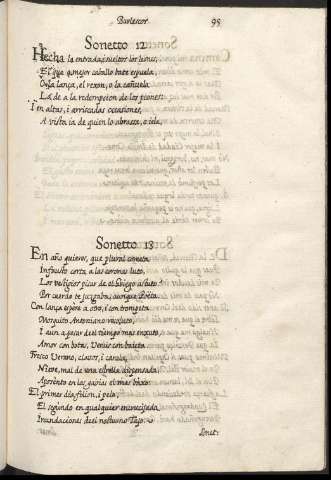 Burlescos. 95
Sonetto 12.
Hecha la entrada, i sueltos los leones,
El que mejor caballo bate espuela
O la lança, el rexon, o la cañuela
La dè a la redempcion de los peones:
I en altas, i arriscadas ocasiones,
A vista ia de quien lo abrasa, o iela,
Sonetto 13.
En año quieres, que plural cometa
Infausto corta a las coronas luto,
Los vestigios pisar de el Griego astuto
Por cuerdo te juzgaba, aunque Poeta.
Con lança espere a otro, i con trompeta
Mosquito Antoniano resoluto,
I aun a pesar de el tiempo mas enxuto
Amor con botas, Venus con baieta.
Fresco Verano, clavos, i canela,
Nieve, mal de una estrella dispensada,
Aposento en las gavias el mas baxo:
El primer dia folion, i pela,
El segundo en qualquier encrucijada
Inundaciones de el nocturno Tajo.
Sonet.